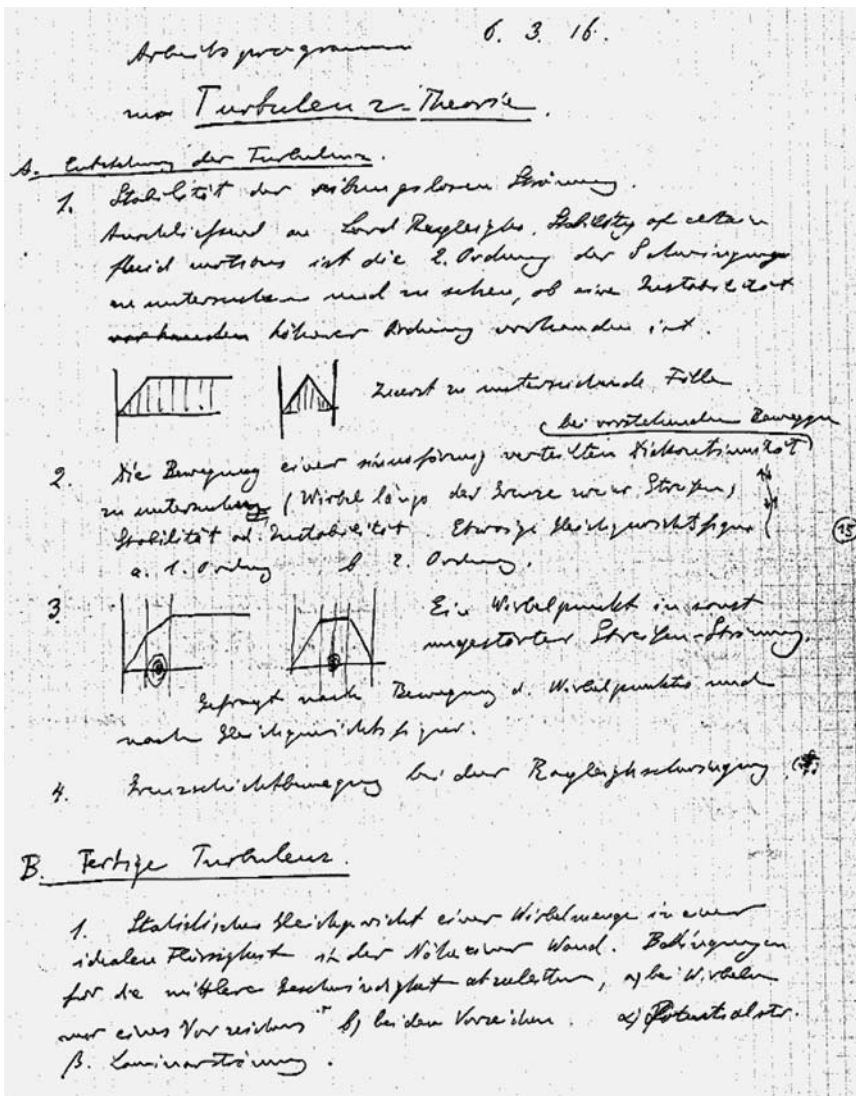 6. 3. 16.
Arbeitsprogramm
zur Turbulenz-Theorie.
A. Entstehung der Turbulenz.
1. Stabilität der reibungslosen Strömung.
Anschließend an Lord Rayleighs. Stability of certain
fluid motions ist die 2. Ordnung der Schwingung
zu untersuchen und zu sehen, ob eine Instabilität
vorhanden höherer Ordnung vorhanden ist.
Zuerst zu untersuchende Fälle
bei vorstehenden
2. Die Bewegung einer sinusförmig verteilten Diskontinuität
zu untersuchen (Wirbel längs der Grenze zweier Streifen)
Stabilität od. Instabilität. Etwaige Gleichgewichtsfigur
15
a. 1. Ordnung b 2. Ordnung.
3 Ein Wirbelpunkt in sonst
ungestörter Streifen-Strömung
Gefragt nach Bewegung d. Wirbelpunktes und
nach Gleichgewichtsfigur.
4. Grenzschichtbewegung bei der Rayleighschwingung
B. Fertige Turbulenz.
1. Statistisches Gleichgewicht einer Wirbelmenge in einer
idealen Flüssigkeit in der Nähe einer Wand. Bedingungen
für die mittlere Geschwindigkeit abzuleiten, a) bei Wirbeln
nur eines Vorzeichens b) beiden Vorzeichen. α) Potentialstr.
β. Laminarströmung.